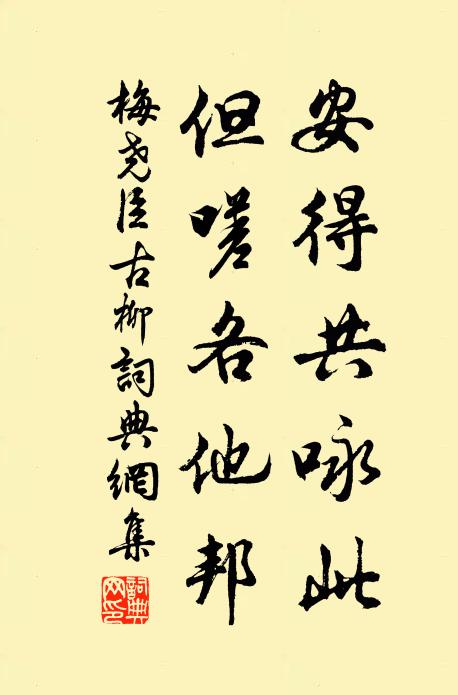 安得共咏此
但嗟各他邦
梅尧臣古柳詞典網集
詞典网印